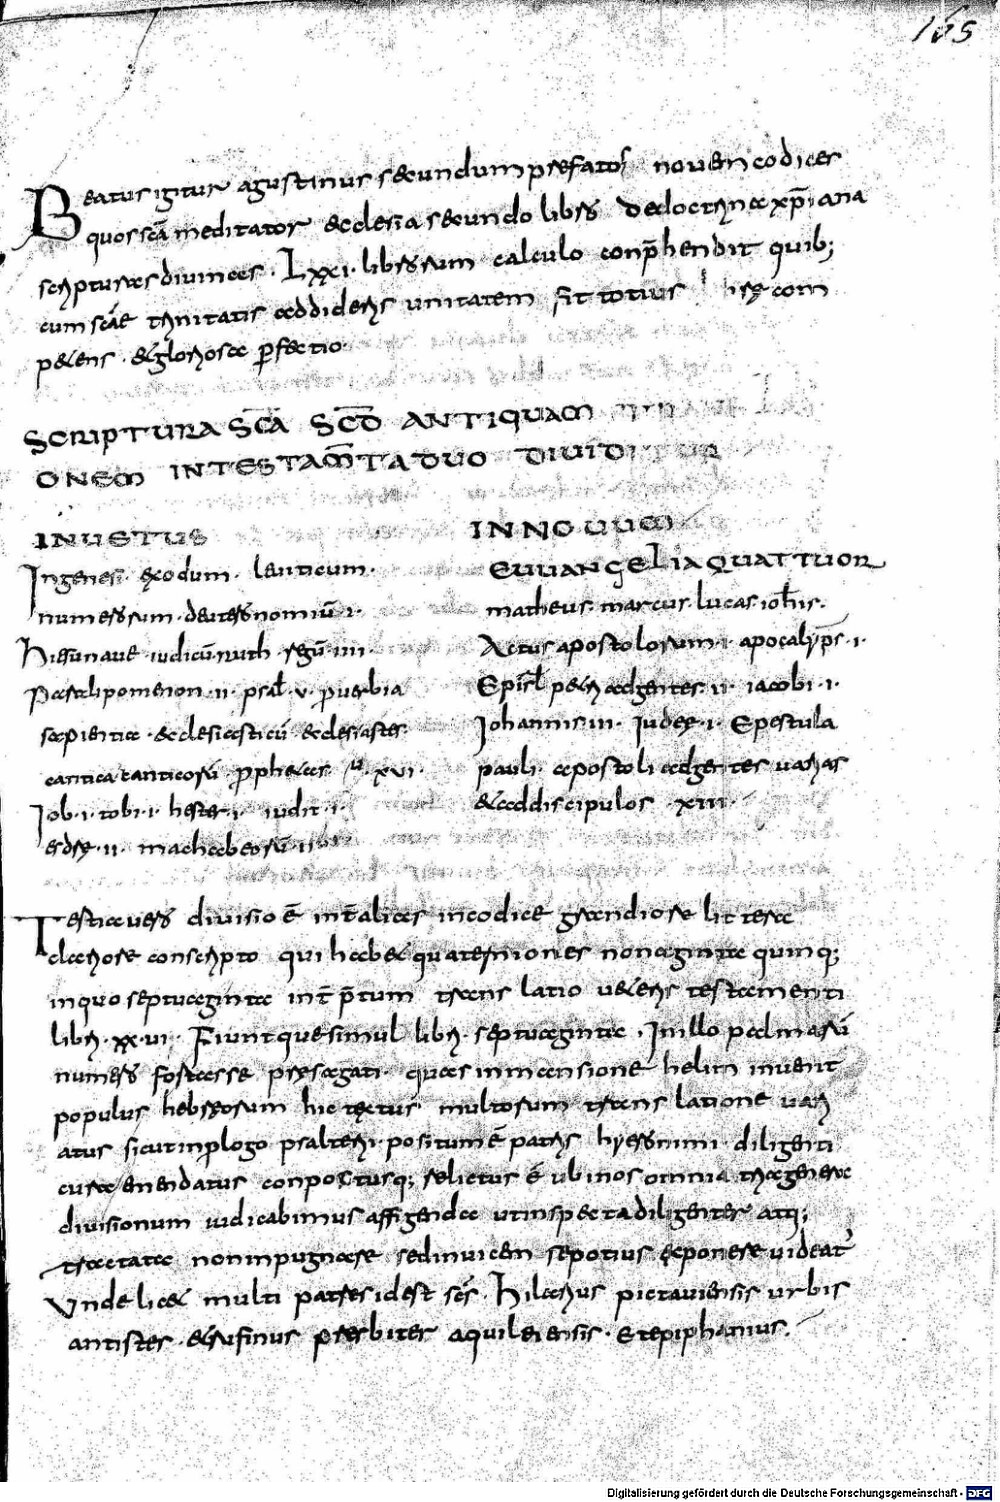 165
Beatus igitur agustinus secundum prefatos novem codices
quos scā meditator ecclesia secundo libro de doctrina xp̄iana
scripturas divinas · Lxxi · librorum calculo conp̄hendit quib;
cum scāe trinitatis addideris unitatem fit totius com
petens · et gloriosa perfectio ·
SCRIPTURA SC̄A SCD̄ ANTIQUAM
ONEM IN TESTAM̄TA DUO DIVIDITUR
IN UETUS
Ingenesi · exodum · leuticum ·
numerorum · deuteronomiū · i ·
Hiesu naue · iudicū · ruth · regū · iiii ·
Paralipomenon · ii · psal · v · prouerbia
sapientia · ecclesiasticū · ecclesiastes ·
cantica canticorū · prophetas · xvi ·
Iob · i · tobi · i · hester · i · iudit · i ·
esdre · ii · machabeorū · ii
IN NOUUM
EUUANGELIA QUATTUOR
matheus · marcus · lucas · ioh̄is ·
Actus apostolorum · i · apocalip̄s · i ·
Epis̄l petri ad gentes · ii · iacobi · i ·
Iohannis · iii · Iude · i · Epestula
pauli · apostoli ad gentes varias
et ad discipulos · xiii ·
Testea vero divisio ē int̄ alias in codice grandiore littera
clariore conscripto qui habet quaterniones nonaginta quinq;
in quo septuaginta int̄p̄tum trans latio ueteris testamenti
libri · xx · vi · Fiuntque simul libri · septuaginta · In illo palmarū
numero fortasse presagati · quas in mansione helim invenit
populus hebreorum hic textus multorum trans latione vari
atus sicut in prologo psalterii · positum ē patris hyeronimi diligenti
cura emendatus conpositusq; relictus ē ubi nos omnia tria genera
divisionum iudicabimus affigenda ut inspecta diligenter atq;
tractata non inpugnare sed invicem se potius exponere videat̄
Unde licet multi patres id est scs · Hilarius pictaviensis urbis
antistes · et rufinus presbiter aquileiensis · et epiphanius ·
Digitalisierung gefördert durch die Deutsche Forschungsgemeinschaft - DFG